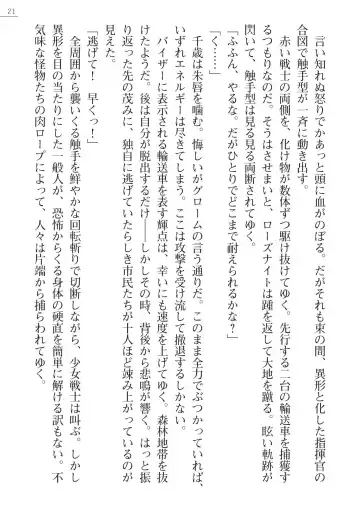 21
言い知れぬ怒りでかあっと頭に血がのぼる。だがそれも束の間、異形と化した指揮官の
合図で触手型が一斉に動き出す。
赤い戦士の両側を、化け物が数体ずつ駆け抜けてゆく。先行する二台の輸送車を捕獲す
るつもりなのだ。そうはさせまいと、ローズナイトは踵を返して大地を蹴る。眩い軌跡が
閃いて、触手型は見る見る両断されてゆく。
「ふふん、やるな。だがひとりでどこまで耐えられるかな？」
「く……」
千歳は朱唇を噛む。悔しいがグロームの言う通りだ。このまま全力でぶつかっていれば、
いずれエネルギーは尽きてしまう。ここは攻撃を受け流して撤退するしかない。
バイザーに表示される輸送車を表す輝点は、幸いにも速度を上げてゆく。森林地帯を抜
けたようだ。後は自分が脱出するだけ――しかしその時、背後から悲鳴が響く。はっと振
り返った先の茂みに、独自に逃げていたらしき市民たちが十人ほど竦み上がっているのが
見えた。
「逃げて！　早くっ！」
全周囲から襲いくる触手を鮮やかな回転斬りで切断しながら、少女戦士は叫ぶ。しかし
異形を目の当たりにした一般人が、恐怖からくる身体の硬直を簡単に解ける訳もない。不
気味な怪物たちの肉ロープによって、人々は片端から捕らわれてゆく。